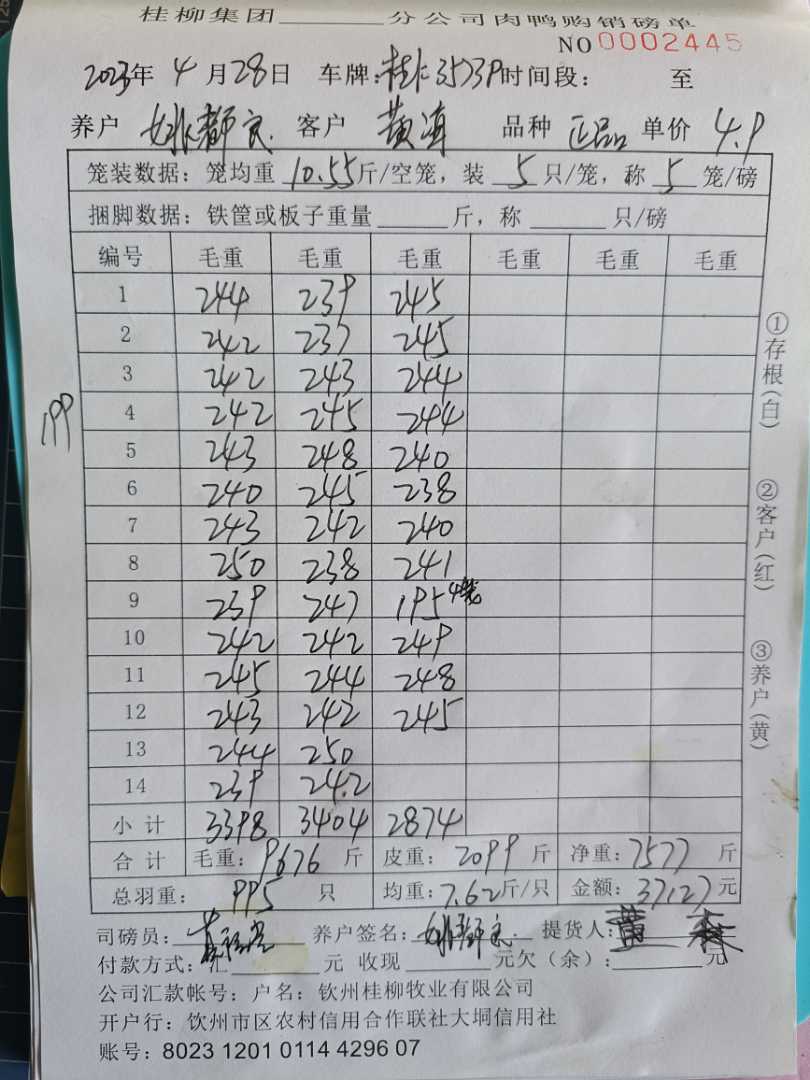 桂柳集团______分公司肉鸭购销磅单
NO 0002445
2023年 4 月 28 日 车牌: 桂 3573P 时间段: 至
养户 姚都良 客户 黄海 品种 正品 单价 4.9
笼装数据: 笼均重 10.55 斤/空笼, 装 5 只/笼, 称 5 笼/磅
捆脚数据: 铁筐或板子重量______斤, 称______只/磅
编号 毛重 毛重 毛重 毛重 毛重 毛重
1 244 239 245
2 242 237 245
3 242 243 244
199
4 242 245 244
5 243 248 240
6 240 245 238
7 243 242 240
8 250 238 241
9 239 247 195 4笼
10 242 242 249
11 245 244 248
12 243 242 245
13 244 250
14 239 242
小计 3398 3404 2874
合计 毛重: 9676 斤 皮重: 2099 斤 净重: 7577 斤
总羽重: 995 只 均重: 7.62 斤/只 金额: 37127 元
①存根(白)
②客户(红)
③养户(黄)
司磅员: 养户签名: 姚都良 提货人:
付款方式: 汇______元 收现______元欠(余):______元
公司汇款帐号: 户名: 钦州桂柳牧业有限公司
开户行: 饮州市区农村信用合作联社大垌信用社
账号: 8023 1201 0114 4296 07